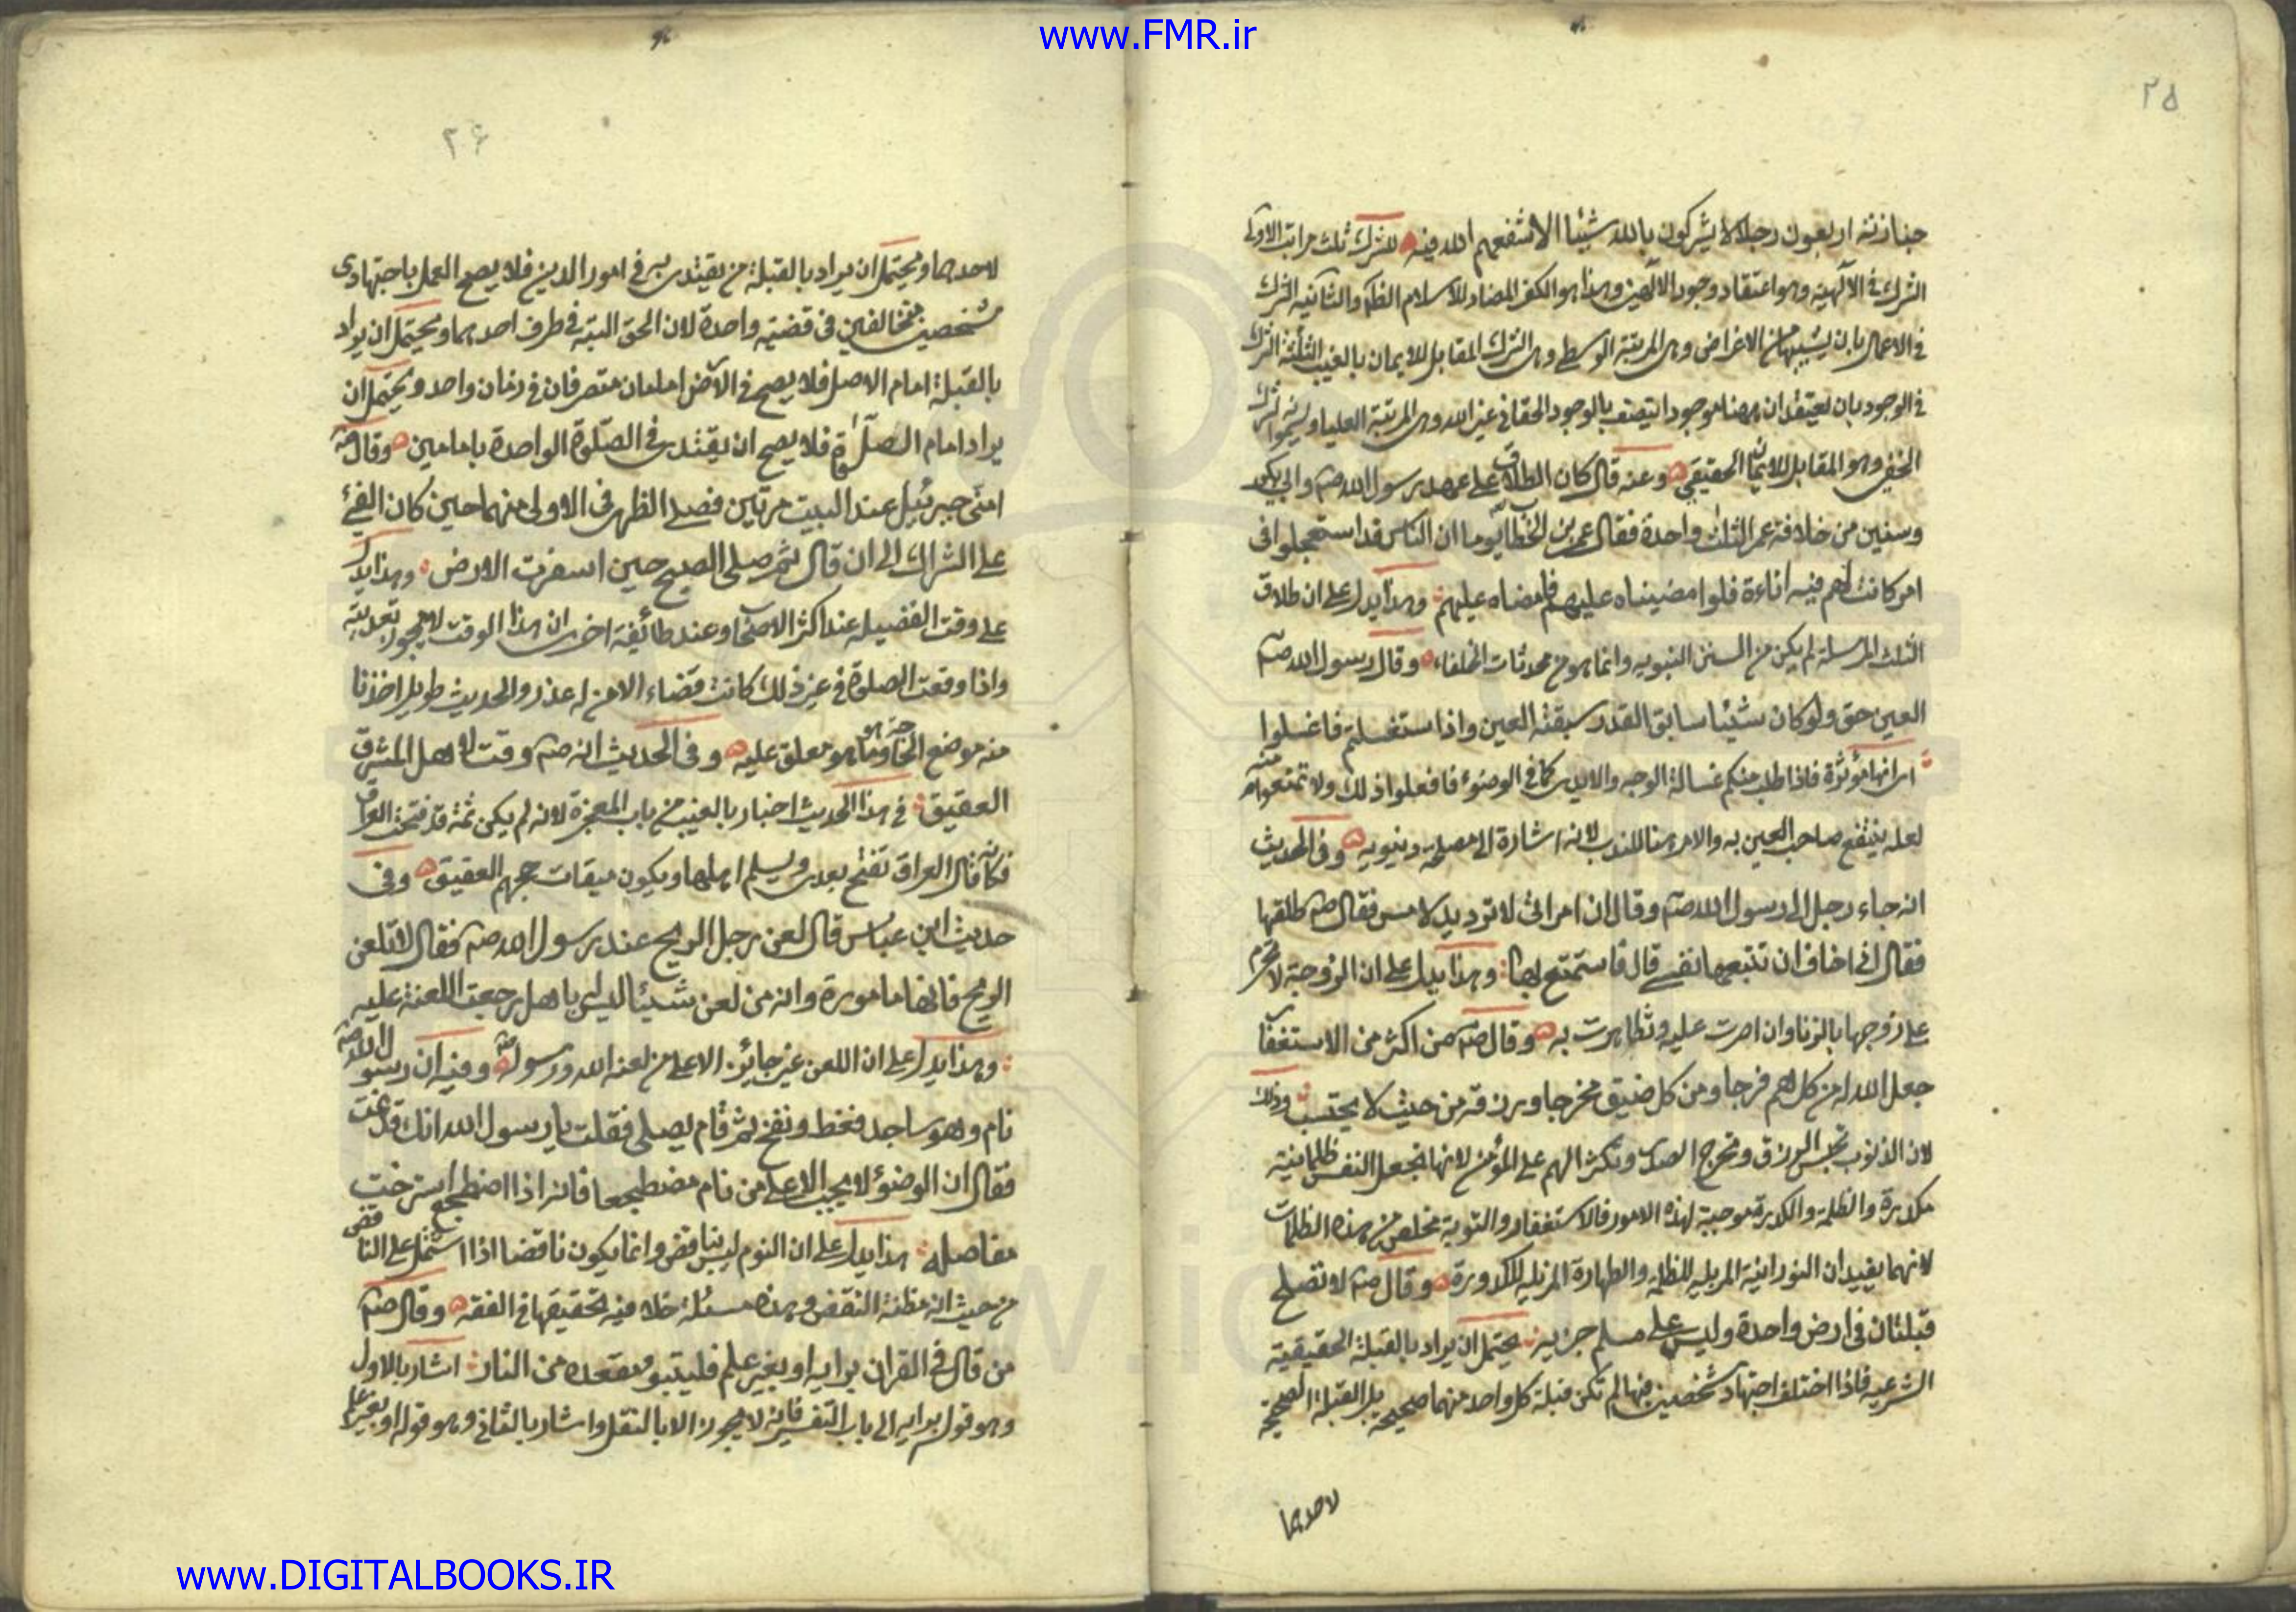 www.FMR.ir
۲۵
جنازته اربعون رجلا لا يشركون بالله شيئا الا شفعهم الله فيه للشرك ثلث مراتب الاولى
الشرك فى الالهية وهو اعتقاد وجود الالهين وهذا هو الكفر المضاد للاسلام الظ والثانيه الشرك
فى الاعمال بان الاغراض وهى المرتبة الوسطى وهى الشرك المقابل للايمان بالغيب الثالثة الشرك
فى الوجود بان يعتقد ان ههنا موجودا يتصف بالوجود الحقانى غير الله وهى المرتبة العليا
الخفى وهو المقابل للايمان الحقيقى وعنه قال كان الطلاق على عهد رسول الله صم وابى بكر
وسنين من خلافة عمر الثلث واحدة فقال عمر بن الخطاب يوما ان الناس قد استعجلوا فى
امر كانت لهم فيه اناءة فلوا مضيناه عليهم فامضاه عليهم وهذا يدل على ان طلاق
الثلث المرسلة لم يكن من السنن النبويه وانما هو من محدثات الخلفاء وقال رسول الله صم
العين حق ولو كان شيئا سابق القدر سبقته العين واذا ستغسلتم فاغسلوا
اى انها مؤثرة فاذا طلب منكم غسالة الوجه والايدى كما فى الوضوء فافعلوا ذلك ولا تمنعوه منه
لعله ينتفع صاحب العين به والامر هنا للندب لانه اشارة الى مصلحة دنيويه وفى الحديث
انه جاء رجل الى رسول الله صم وقال ان امراتى لا ترد يد لامس فقال صم طلقها
فقال انى اخاف ان تتبعها نفسى قال فاستمتع بها وهذا يدل على ان الزوجة لا تحرم
على زوجها بالزنا وان اصرت عليه وتظاهرت به وقال صم من اكثر من الاستغفار
جعل الله له من كل هم فرجا ومن كل ضيق مخرجا ويرزقه من حيث لا يحتسب وذلك
لان الذنوب تحبس الرزق وتحرج الصدر وتكثر الهم على المؤمن لانها تجعل النفس ظلمانية
مكدرة والظلمة والكدرة موجبة لهذه الامور فالاستغفار والتوبة مخلص من هذه الظلمات
لانهما يفيدان النورانية المزيلة للظلمة والطهارة المزيله للكدورة وقال صم لا تصلح
قبلتان فى ارض واحدة وليس على مسلم جزيه يحتمل ان يراد بالقبلة الحقيقية
الشرعيه فاذا اختلف اجتهاد شخصين فيها لم تكن قبلة كل واحد منهما صحيحة بل القبلة الصحيحة
لاحدهما
۲۶
لاحدهما ويحتمل ان يراد بالقبلة من يقتدى به فى امور الدين فلا يصح العمل باجتهادى
شخصين متخالفين فى قضية واحدة لان الحق البتة فى طرف احدهما ويحتمل ان يراد
بالقبلة امام الاصل فلا يصح فى الارض امامان متصرفان فى زمان واحد ويحتمل ان
يراد امام الصلوة فلا يصح ان يقتدى فى الصلوة الواحدة بامامين وقال صم
امنى جبرئيل عند البيت مرتين فصلى الظهر فى الاولى منهما حين كان الفئ
على الشراك الى ان قال ثم صلى الصبح حين اسفرت الارض وهذا يدل
على وقت الفضيلة عند اكثر الاصحاب وعند طائفة اخرى ان هذا الوقت لا يجوز تعديته
واذا وقعت الصلوة فى غير ذلك كانت قضاء الا من له عذر والحديث طويل اخذنا
منه موضع الحاجة وما هو معلق عليه وفى الحديث انه صم وقت لاهل المشرق
العقيق فى هذا الحديث اخبار بالغيب من باب المعجزة لانه لم يكن ثمة قد فتحت العراق
فكانه قال العراق تفتح بعدى ويسلم اهلها ويكون ميقات حجهم العقيق وفى
حديث ابن عباس قال لعن رجل الريح عند رسول الله صم فقال لا تلعن
الريح فانها مامورة وانه من لعن شيئا ليس باهل رجعت اللعنة عليه
وهذا يدل على ان اللعن غير جائز الا على من لعنه الله ورسوله وفيه ان رسول الله صم
نام وهو ساجد فغط ونفخ ثم قام يصلى فقلت يا رسول الله انك قد نمت
فقال ان الوضوء لا يجب الا على من نام مضطجعا فانه اذا اضطجع استرخت
مفاصله هذا يدل على ان النوم ليس بناقض وانما يكون ناقضا اذا اشتمل على الناقض
من حيث انه مظنة النقض وهذه مسئلة خلافيه تحقيقها فى الفقه وقال صم
من قال فى القران برايه او بغير علم فليتبو مقعده من النار اشار بالاول
وهو قول برايه الى باب التفسير فانه لا يجوز الا بالنقل واشار بالثانى وهو قوله او بغير علم
www.DIGITALBOOKS.IR